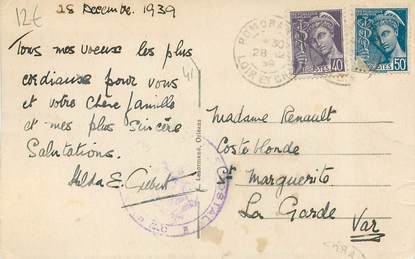 12€
28 Decembre. 1939
Tous mes voeux les plus
cordiaux pour vous
et votre chère famille
et mes plus sincère
Salutations.
Hilda E. Gilbert
41
Lenormand, Orléans
28
LOIR ET CHER
POSTES 40
POSTES 50
POSTAL
Madame Renault
Coste blonde
Ste Marguerite
La Garde
Var